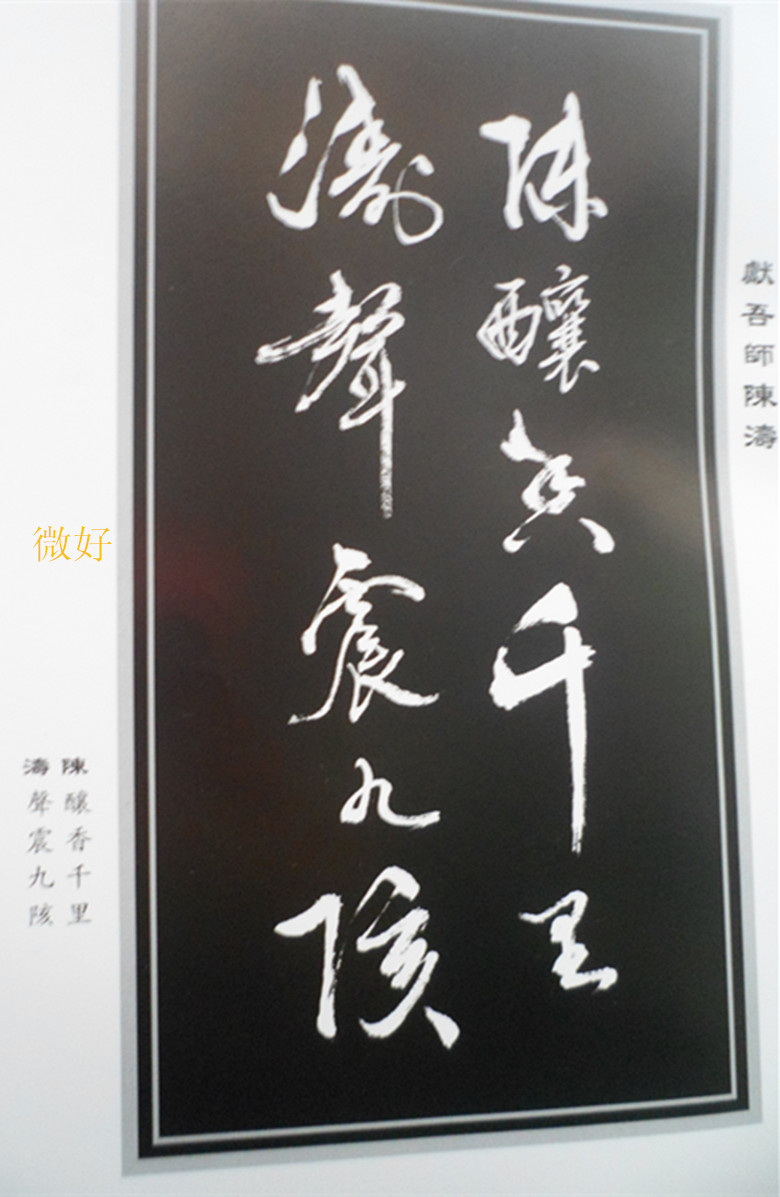 獻吾師陳濤
陳釀香千里
濤聲震九陔
陳釀香千里
濤聲震九陔
微好